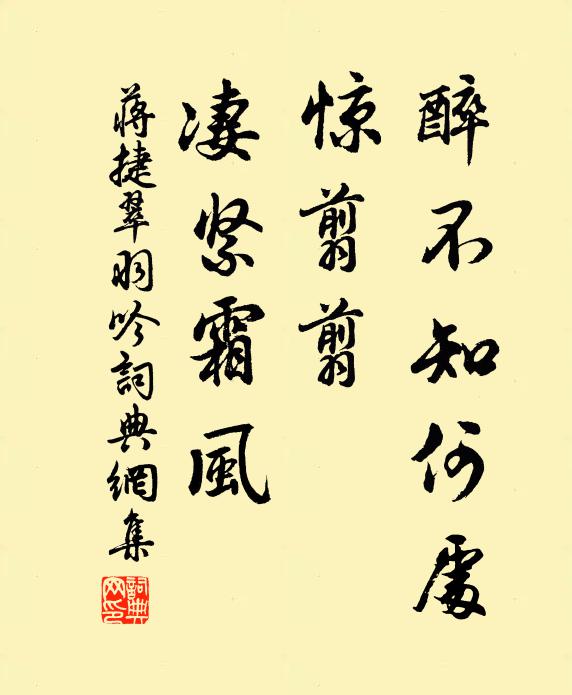 醉不知何處
惊翦翦
凄紧霜風
蒋捷翠羽吟詞典網集
詞典网印